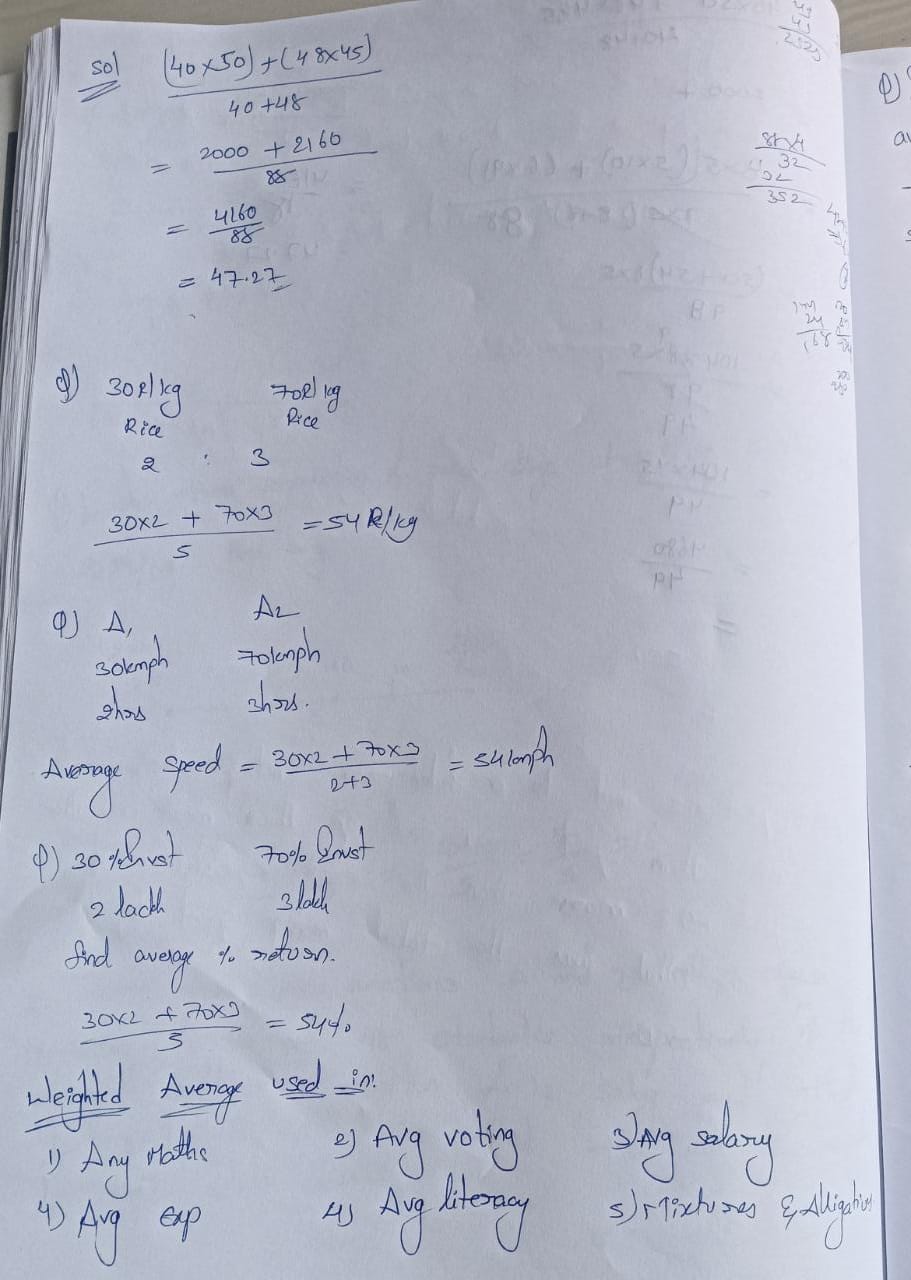 sol (40×50)+(48×45)
40+48
= 2000 + 2160
88
= 4160
88
= 47.27
Q) 30R/kg 70R/kg
Rice Rice
2 : 3
30×2 + 70×3 = 54 R/kg
5
Q) A1 A2
30kmph 70kmph
2hrs 3hrs.
Average speed = 30×2 + 70×3 = 54kmph
2+3
Q) 30% Invst 70% Invst
2 lackh 3 lakh
find average % return.
30×2 + 70×3 = 54%
5
Weighted Average used in:
1) Any Maths 2) Avg voting 3) Avg salary
4) Avg exp 4) Avg literacy 5) Mixtures & Alligation
8×4
32
352